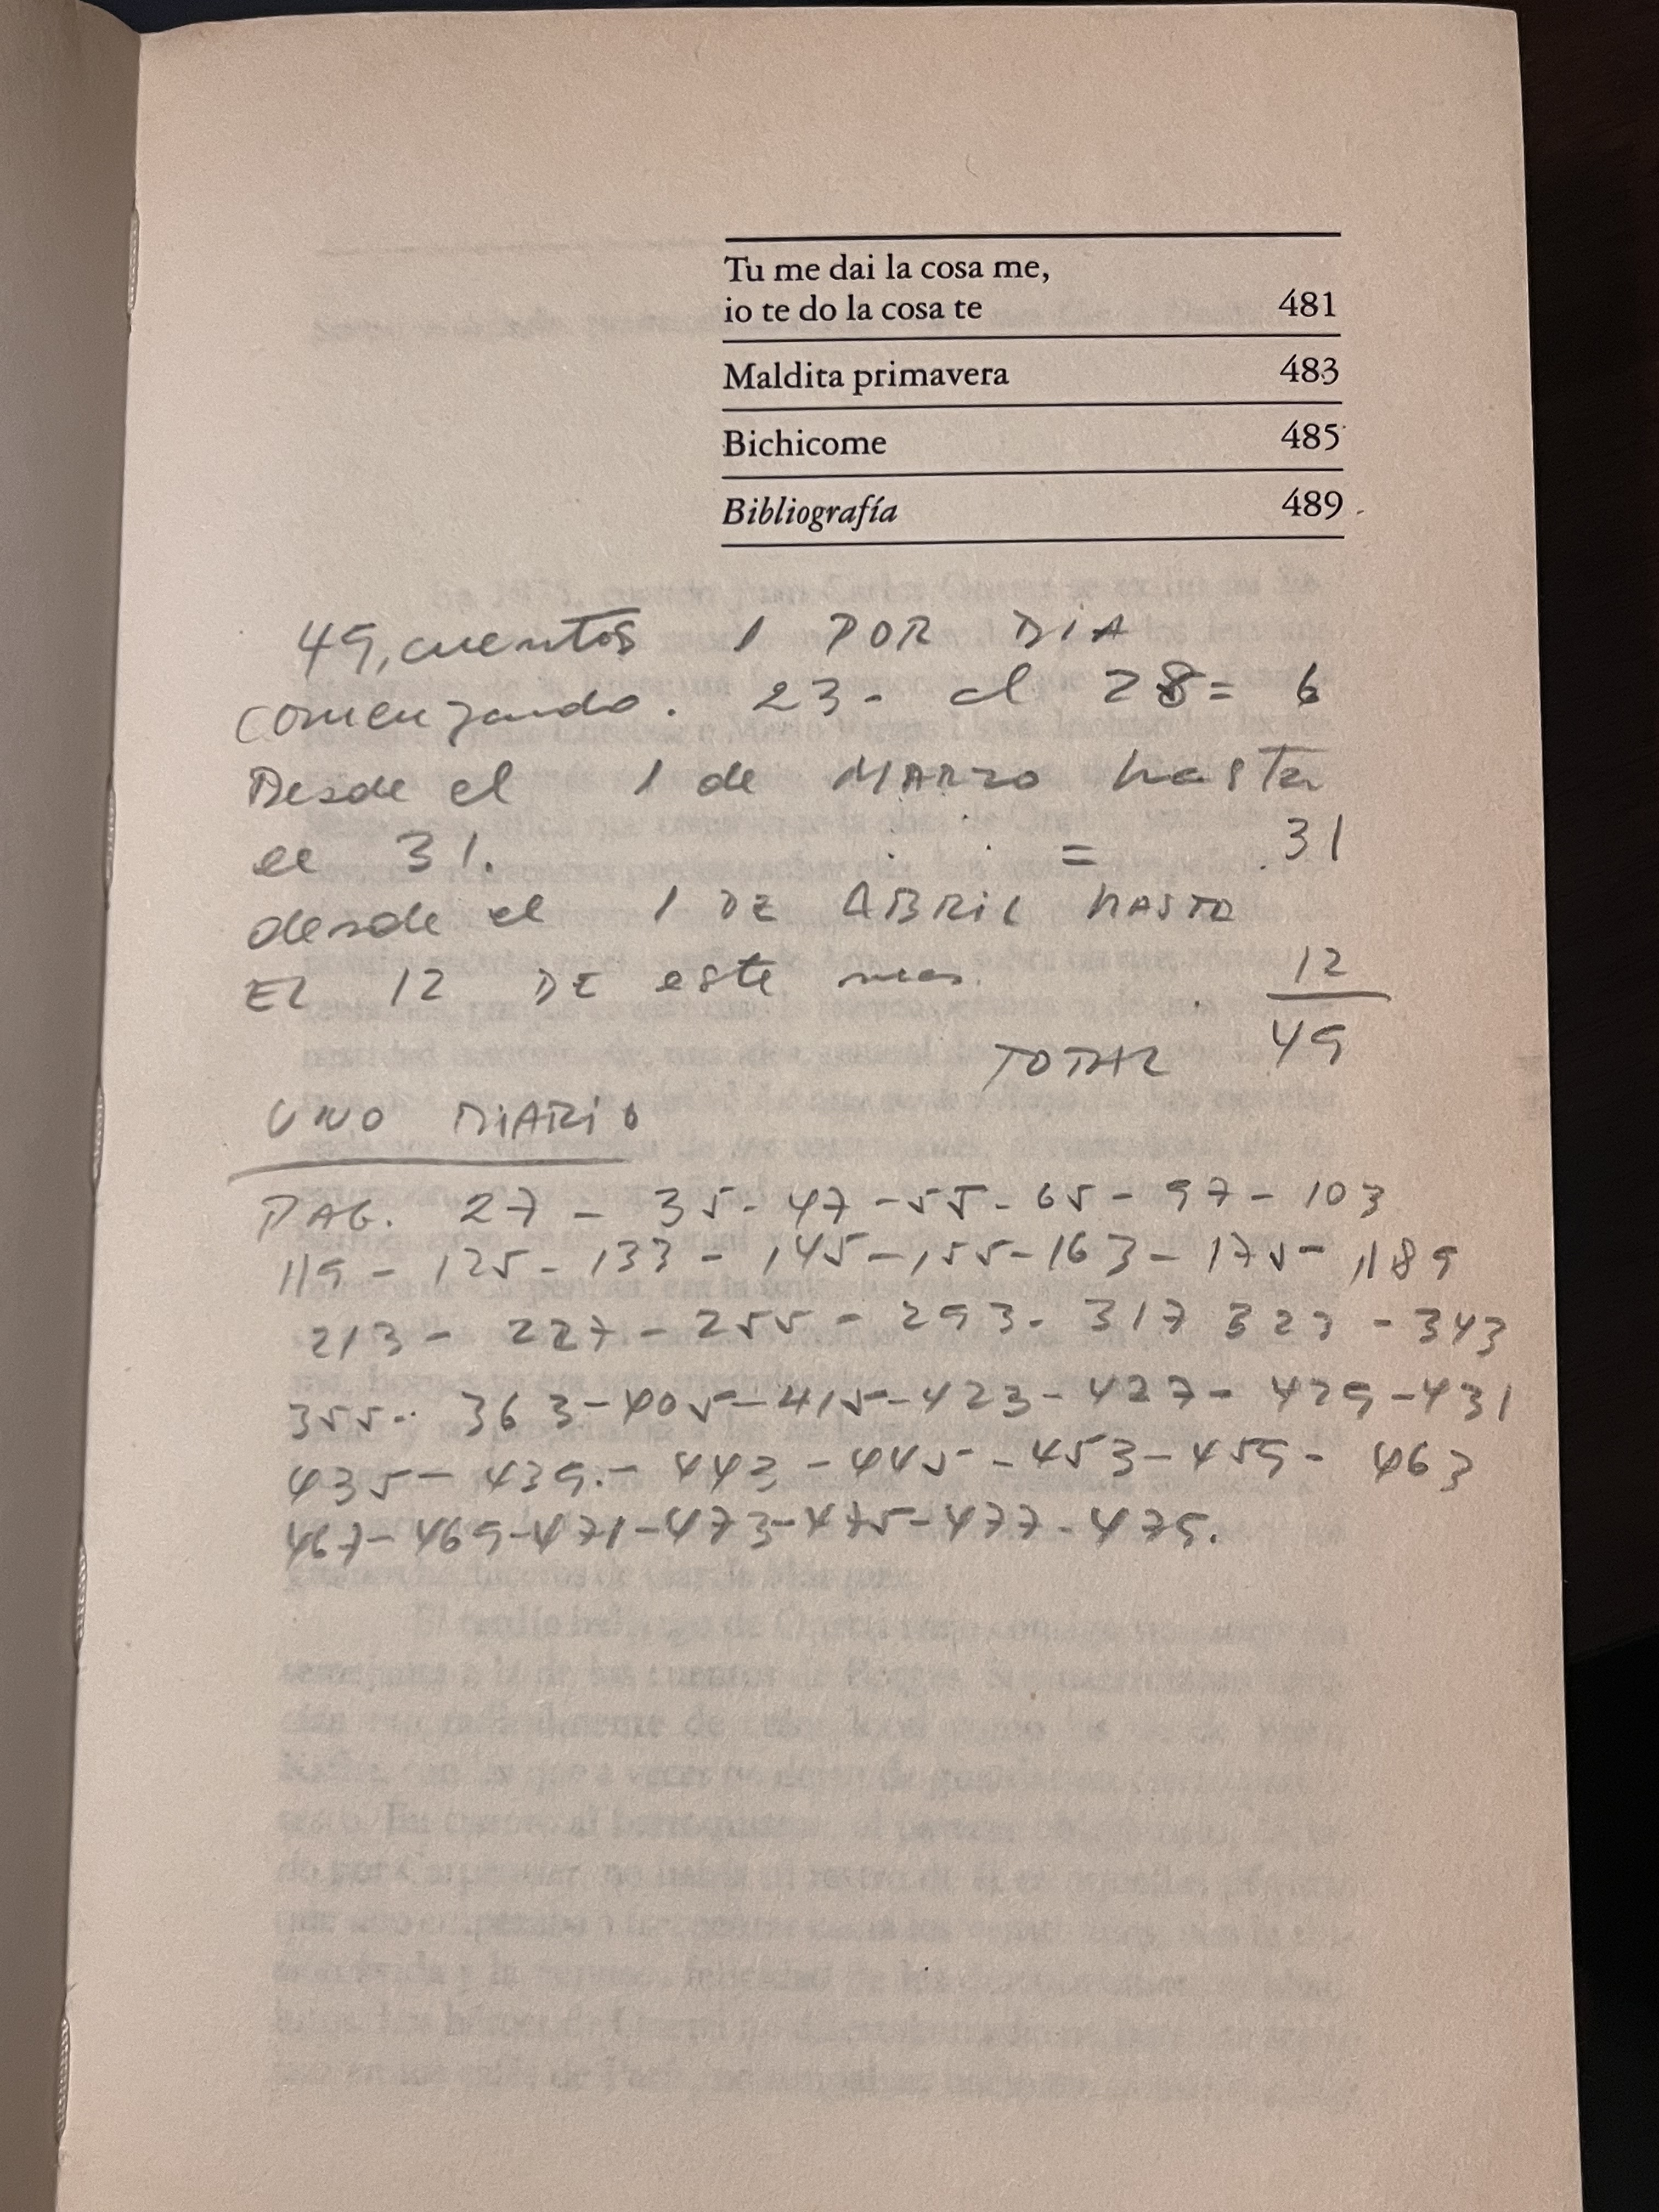 Tu me dai la cosa me,
io te do la cosa te 481
Maldita primavera 483
Bichicome 485
Bibliografía 489
49, cuentos 1 POR DIA
comenzando. 23 - al 28 = 6
Desde el 1 de MARZO hasta
el 31. = 31
desde el 1 DE ABRIL hasta
El 12 DE este mes. 12
TOTAL 49
UNO DIARIO
PAG. 27 - 35 - 47 - 55 - 65 - 97 - 103
119 - 125 - 133 - 145 - 155 - 163 - 175 - 189
213 - 227 - 255 - 293 - 317 323 - 343
355 - 363 - 405 - 415 - 423 - 427 - 429 - 431
435 - 439 - 443 - 445 - 453 - 459 - 463
467 - 469 - 471 - 473 - 475 - 477 - 479.